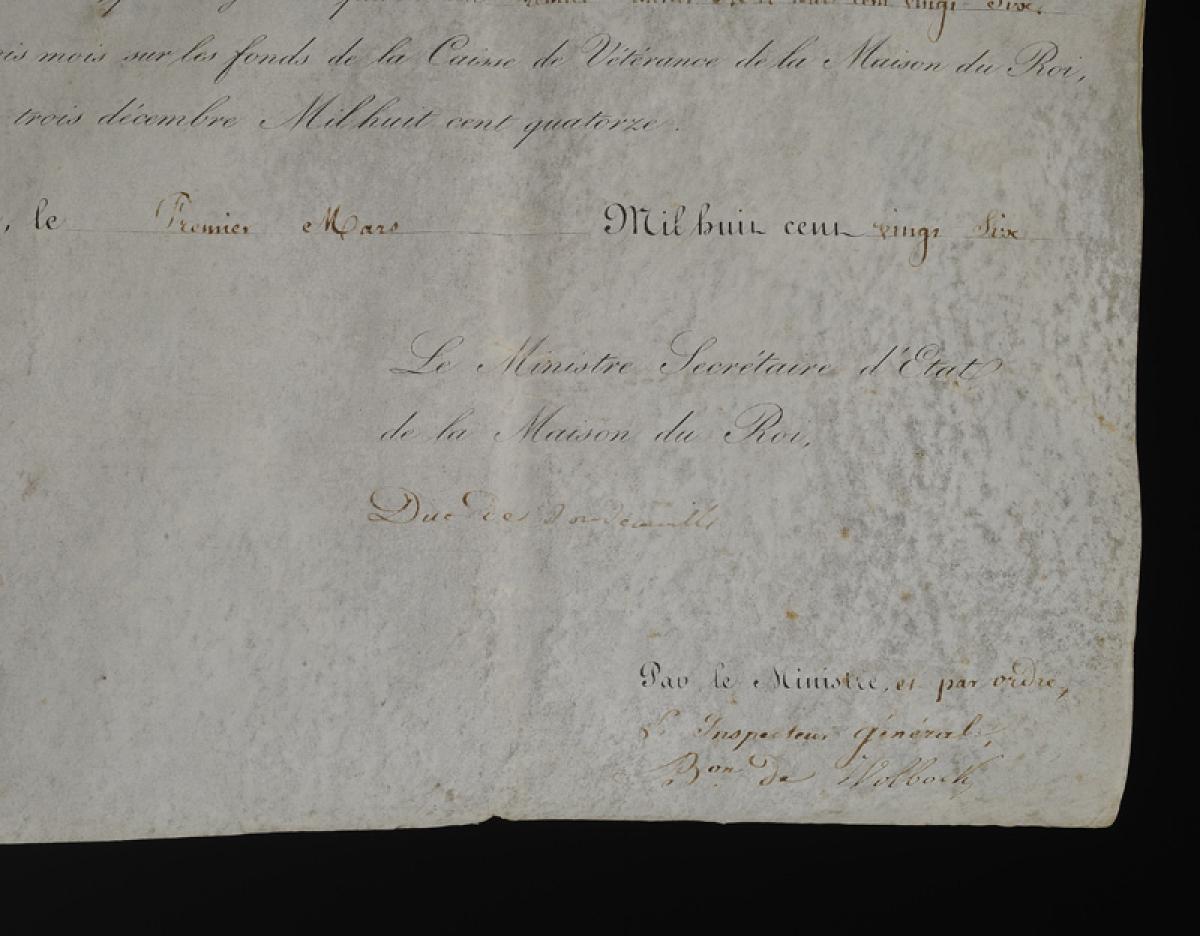 Mil huit cent vingt Six.
mois sur les fonds de la Caisse de Vétérance de la Maison du Roi,
trois décembre Mil huit cent quatorze.
, le Premier Mars Mil huit cent vingt Six
Le Ministre Secrétaire d'Etat
de la Maison du Roi,
Duc de
Par le Ministre, et par ordre,
L'Inspecteur général,
Bon. de Wolbock